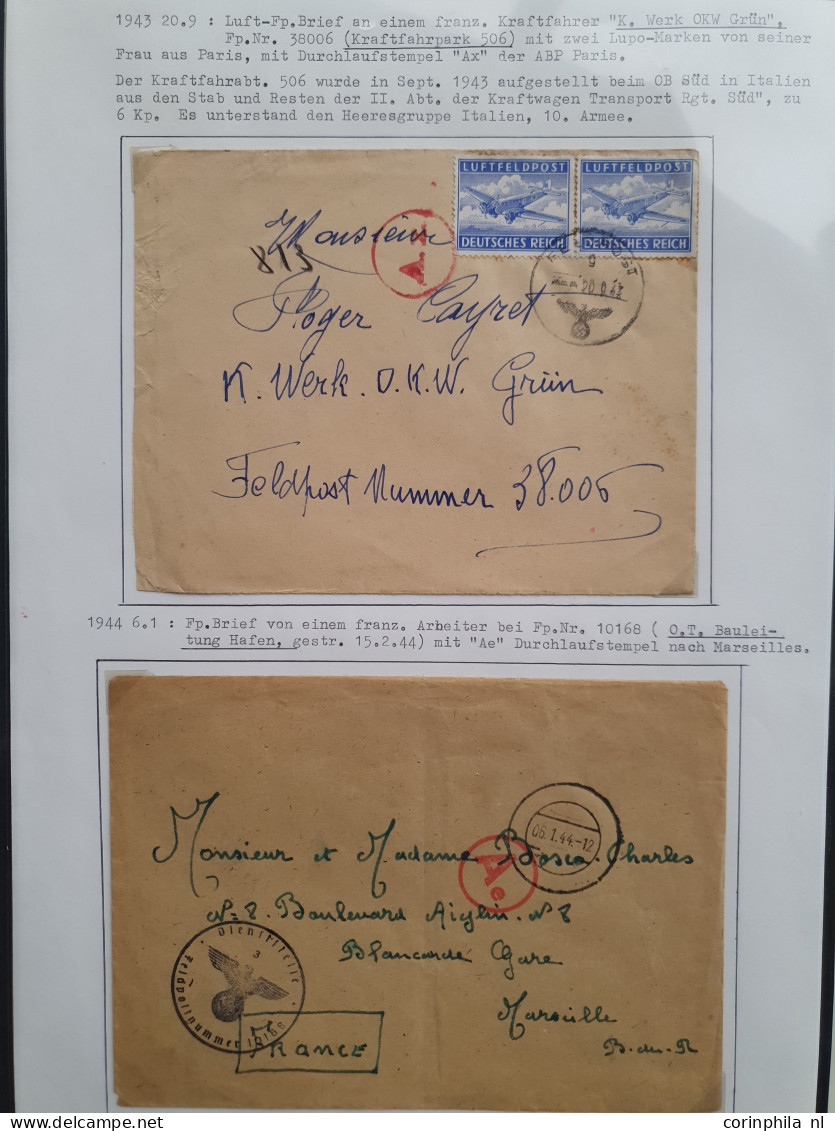 1943 20.9 : Luft-Fp.Brief an einem franz. Kraftfahrer "K. Werk OKW Grün",
Fp.Nr. 38006 (Kraftfahrpark 506) mit zwei Lupo-Marken von seiner
Frau aus Paris, mit Durchlaufstempel "Ax" der ABP Paris.
Der Kraftfahrabt. 506 wurde in Sept. 1943 aufgestellt beim OB Süd in Italien
aus den Stab und Resten der II. Abt. der Kraftwagen Transport Rgt. Süd", zu
6 Kp. Es unterstand den Heeresgruppe Italien, 10. Armee.
LUFTFELDPOST LUFTFELDPOST
DEUTSCHES REICH DEUTSCHES REICH
Monsieur
813
Roger Cayret
K. Werk. O.K.W. Grün
Feldpost Nummer 38.006
1944 6.1 : Fp.Brief von einem franz. Arbeiter bei Fp.Nr. 10168 ( O.T. Baulei-
tung Hafen, gestr. 15.2.44) mit "Ae" Durchlaufstempel nach Marseilles.
06.1.44.-12
Ae
Monsieur et Madame Bosca Charles
N=8. Boulevard Aiglin. N8
Blancarde Gare
Marseille
B-du-R
Dienststelle
Feldpostnummer 10168
FRANCE
Image hosted on www.delcampe.net
corinphila nl